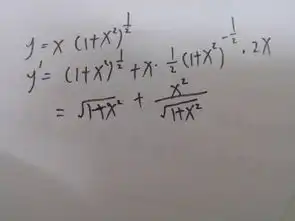 y = x (1+x²)^{1/2}
y' = (1+x²)^{1/2} + x · 1/2 (1+x²)^{-1/2} · 2x
= √(1+x²) + x²/√(1+x²)